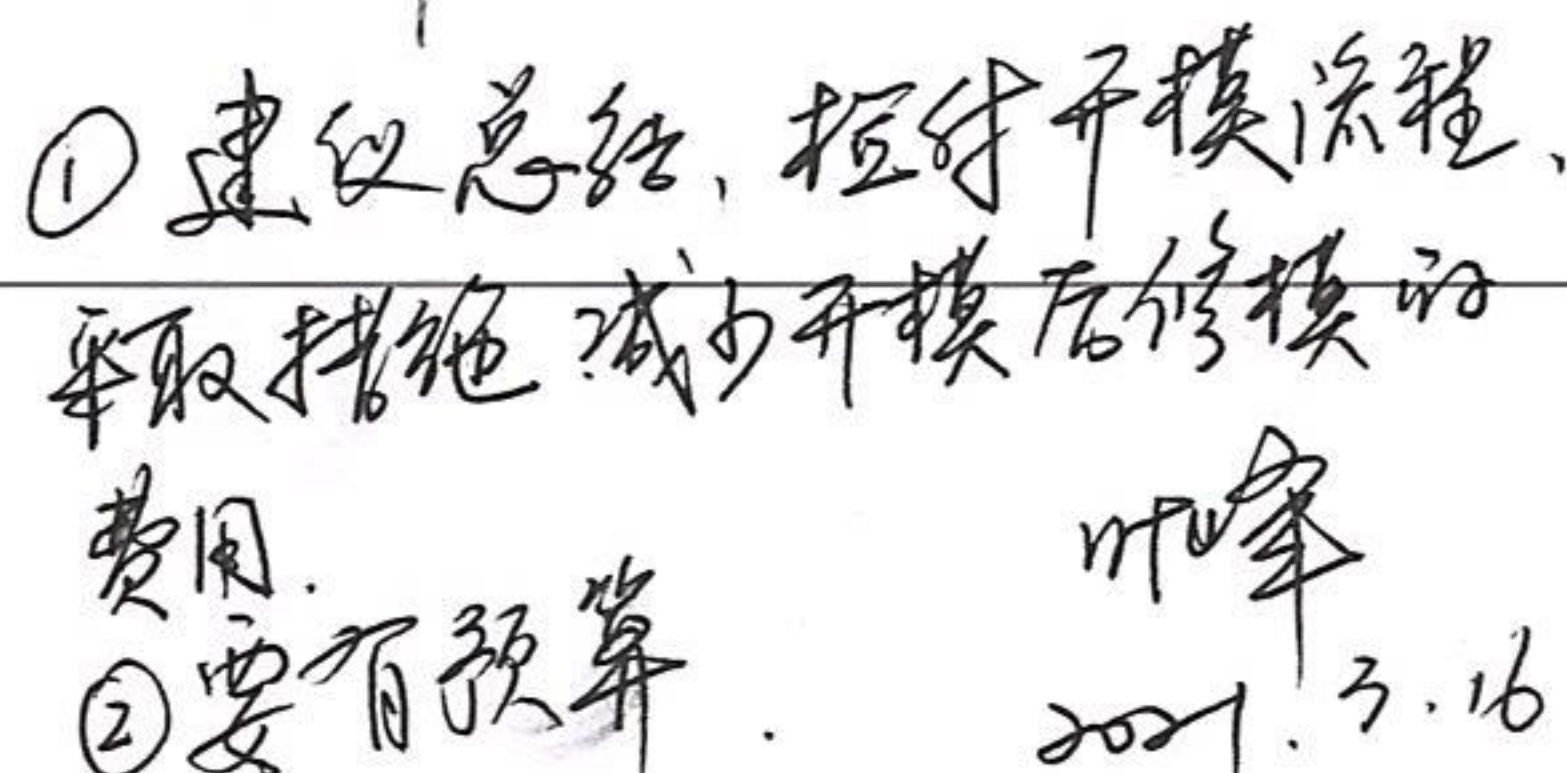 ① 建议总结、检讨开模流程、
采取措施减少开模后修模的
费用.
叶峰
② 要有预算.
2021.3.16